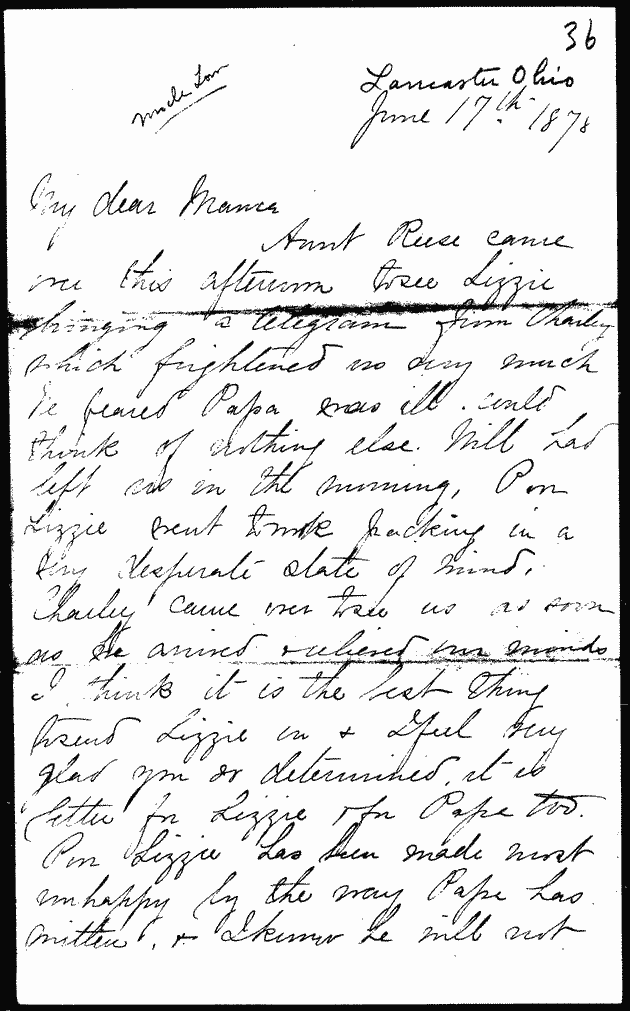 36
Uncle Tom
Lancaster Ohio
June 17th 1878
My dear Mama
Aunt Reese came
over this afternoon to see Lizzie
bringing a telegram from Charley
which frightened us very much
We feared Papa was ill. could
think of nothing else. Will had
left us in the morning, Poor
Lizzie went to work packing in a
very desperate state of mind,
Charley came over to see us as soon
as he arrived & relieved our minds
I think it is the best thing
to send Lizzie on & I feel very
glad you so determined, it is
better for Lizzie & for Papa too.
Poor Lizzie has been made most
unhappy by the way Papa has
written, & I know he will not